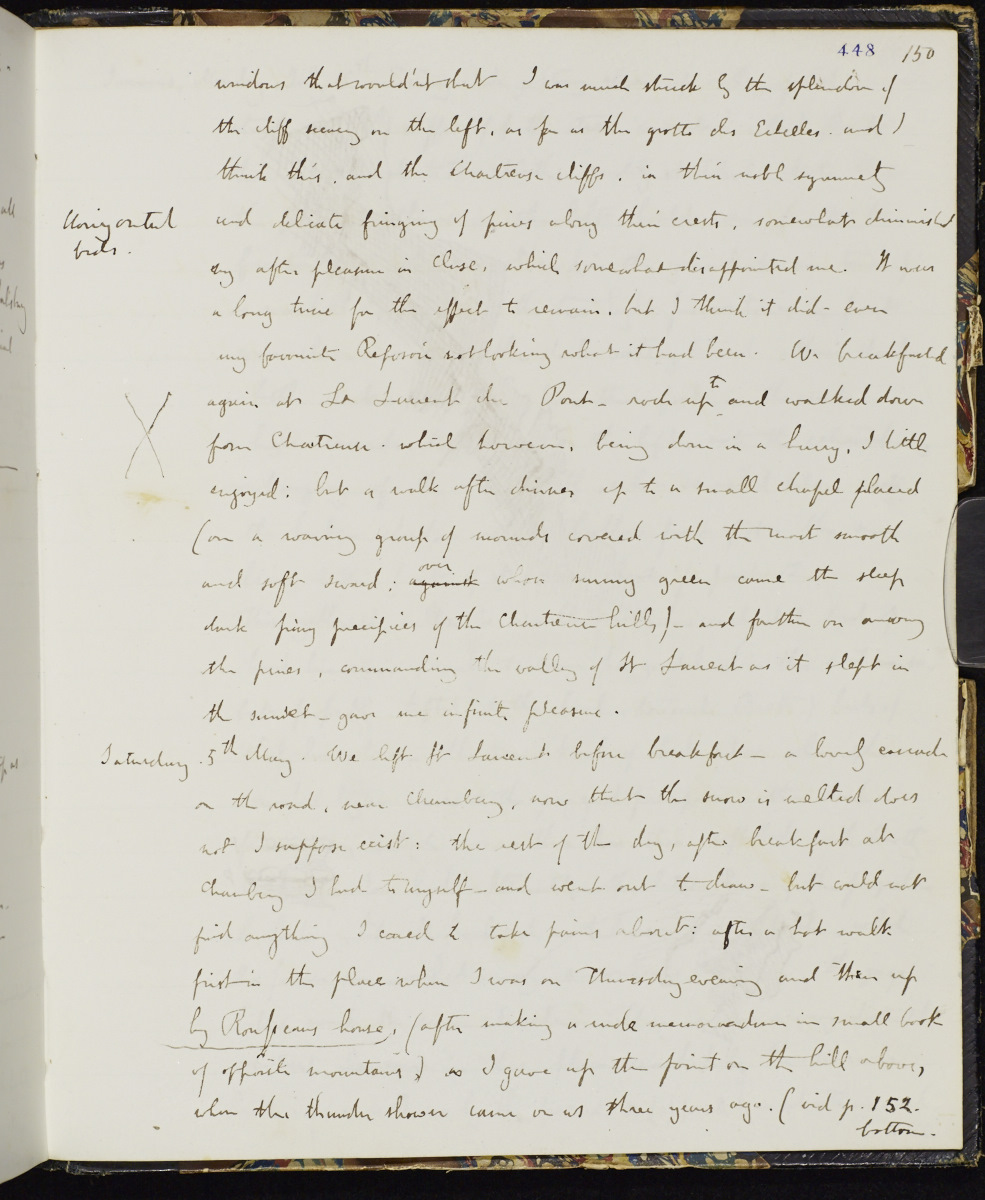 448 150
windows that wouldn't shut I was much struck by the splendour of
the cliff scenery on the left, as far as the grotto des Echelles. and I
think this, and the Chartreuse cliffs, in their noble symmetry
Horizontal
beds.
and delicate fringing of pines along their crests, somewhat diminished
my after pleasure in Cluse, which somewhat disappointed me. It was
a long time for the effect to remain, but I think it did - even
my favourite Reposoir not looking what it had been. We breakfasted
again at St Laurent du Pont - rode up to and walked down
from Chartreuse. which however, being done in a hurry, I little
enjoyed: but a walk after dinner up to a small chapel placed
(on a waving group of mounds covered with the most smooth
and soft sward; against over whose sunny green came the steep
dark piny precipices of the Chartreuse hills) - and further on among
the pines, commanding the valley of St Laurent as it slept in
the sunset - gave me infinite pleasure.
Saturday. 5th May. We left St Laurent before breakfast - a lovely cascade
on the road, near Chambery, now that the snow is melted does
not I suppose exist: the rest of the day, after breakfast at
Chambery I had to myself - and went out to draw - but could not
find anything I cared to take pains about: after a hot walk
first in the place where I was on Thursday evening and then up
by Rousseaus house, (after making a rude memorandum in small book
of opposite mountains) as I gave up the point on the hill above,
when the thunder shower came on us three years ago. (vid p. 152.
bottom.